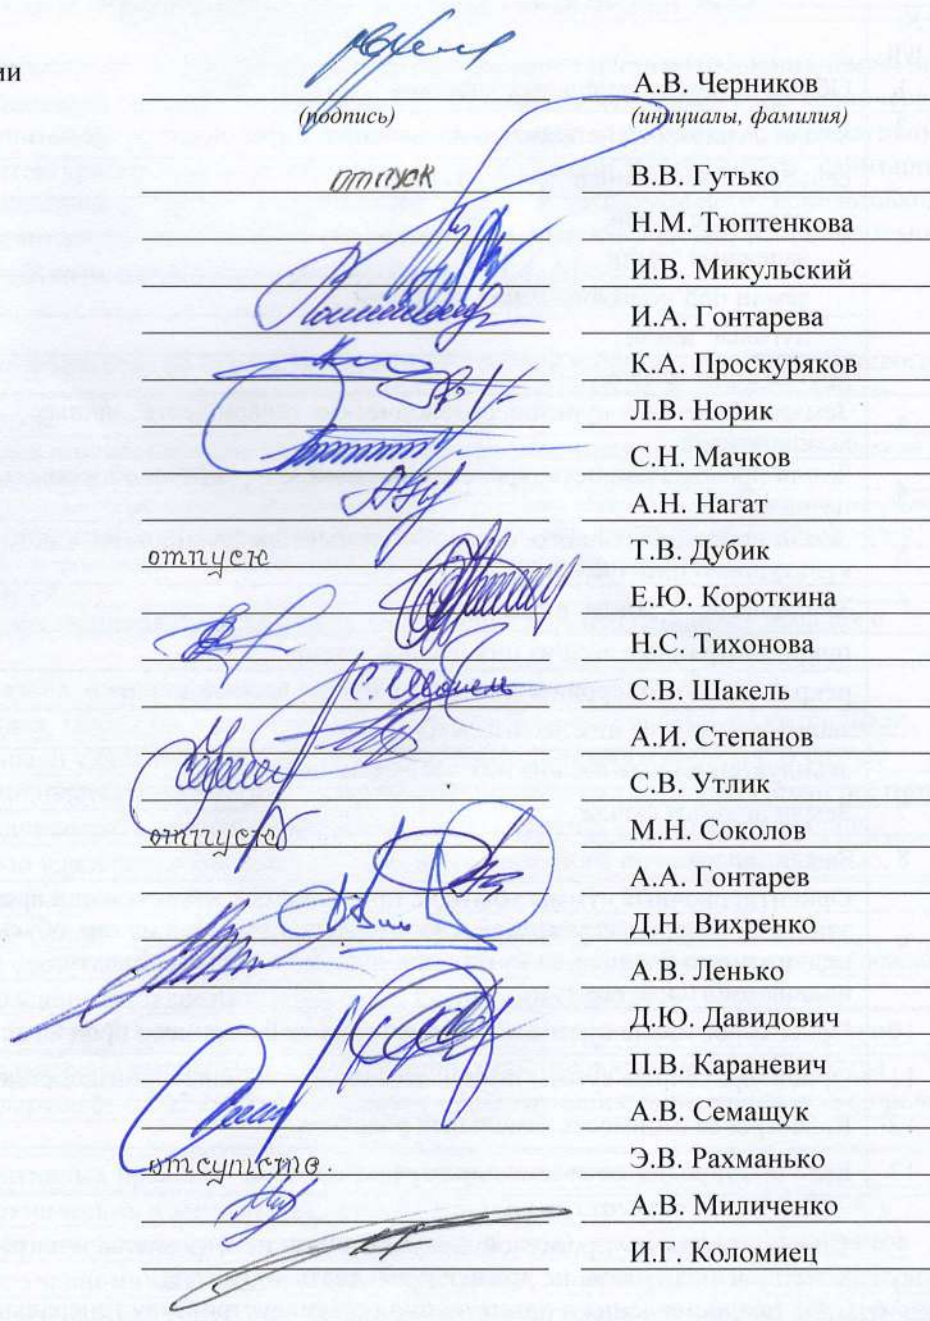 ии
А.В. Черников
(подпись) (инициалы, фамилия)
отпуск В.В. Гутько
Н.М. Тюптенкова
И.В. Микульский
И.А. Гонтарева
К.А. Проскуряков
Л.В. Норик
С.Н. Мачков
А.Н. Нагат
отпуск Т.В. Дубик
Е.Ю. Короткина
Н.С. Тихонова
С.В. Шакель
А.И. Степанов
С.В. Утлик
отпуск М.Н. Соколов
А.А. Гонтарев
Д.Н. Вихренко
А.В. Ленько
Д.Ю. Давидович
П.В. Караневич
А.В. Семащук
отсутств. Э.В. Рахманько
А.В. Миличенко
И.Г. Коломиец